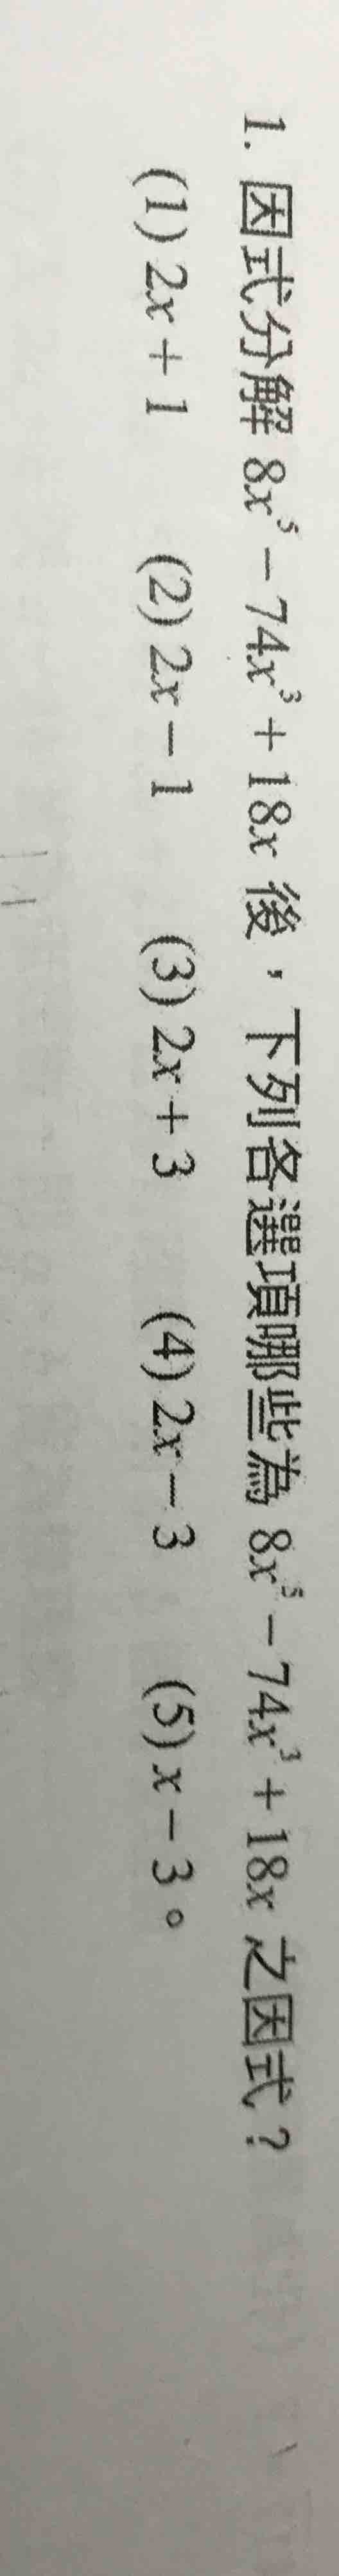 1. 因式分解 8x⁵ − 74x³ + 18x 後，下列各選項哪些為 8x⁵ − 74x³ + 18x 之因式？
(1) 2x + 1 (2) 2x − 1 (3) 2x + 3 (4) 2x − 3 (5) x − 3。